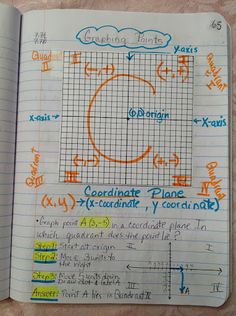 65
Graphing Points
y-axis
Quadrant II
Quadrant I
(-,+) (+,+)
(0,0) origin
x-axis
x-axis
(-,-) (+,-)
Quadrant III
Quadrant IV
Coordinate Plane
(x,y) → (x-coordinate, y coordinate)
• Graph point A (3,-5) in a coordinate plane. In
which quadrant does the point lie?
Step 1: Start at origin
Step 2: Move 3 units to
the right
Step 3: Move 5 units down
Draw dot & label A
Answer: Point A lies in Quadrant IV
II I
III IV
A